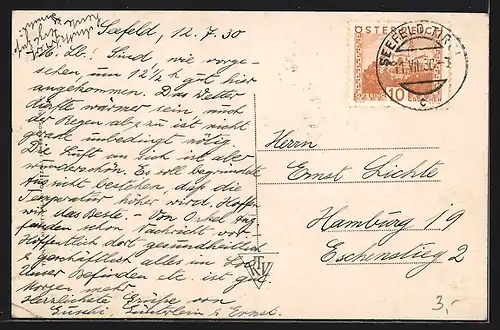 Seefeld, 12.7.30
M. Lb! Sind, wie vorge-
sehen, um 12½ h gut hier
angekommen. Das Wetter
dürfte wärmer sein, auch
der Regen ab & zu ist nicht
gerade unbedingt nötig.
Die Luft an sich ist aber
wunderschön. Es soll begründete
Aussicht bestehen, daß die
Temperatur höher wird. Hoffen
wir das Beste. - Von Onkel Aug.
fanden schon Nachricht vor.
Hoffentlich dort gesundheitlich
& geschäftlich alles im
Unser Befinden etc. ist gut.
Morgen mehr
Herzlichste Grüße von
Ernst.
ÖSTERREICH
10 GROSCHEN
SEEFELD
Herrn
Ernst Lichte
Hamburg 19
Eschenstieg 2
3,-